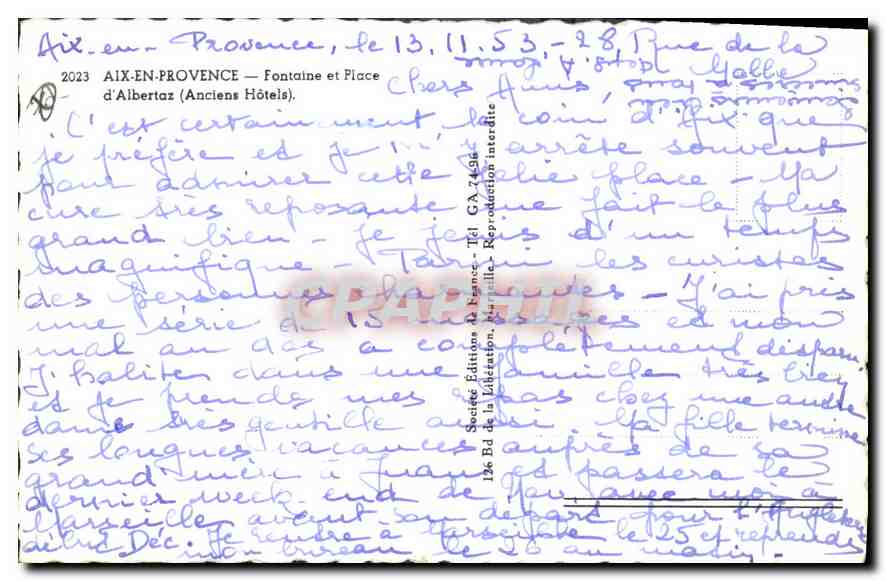 Aix-en-Provence, le 13.11.53, - 28 Rue de la
2023 AIX-EN-PROVENCE — Fontaine et Place
d'Albertaz (Anciens Hôtels).
Chers Amis,
C'est certainement le coin d'Aix que
je préfère et je m'y arrête souvent
pour admirer cette jolie place - Ma
cure très reposante me fait le plus
grand bien - Je jouis d'un temps
magnifique - Parmi les curistes
des personnes charmantes - J'ai pris
une série de 15 massages et mon
mal au dos a complètement disparu.
J'habite dans une famille très bien
et je prends mes repas chez une autre
dame très gentille aussi. Ma fille termine
ses longues vacances auprès de sa
grand'mère à Juan et passera le
dernier week-end de avec moi à
Marseille avant son départ pour l'Angleterre
début Déc. Je rentre à Marseille le 25 et reprends
mon bureau le 26 au matin -
Société Éditions de France - Tél GA 74-96
126 Bd de la Libération, Marseille - Reproduction interdite
CPAPHIL